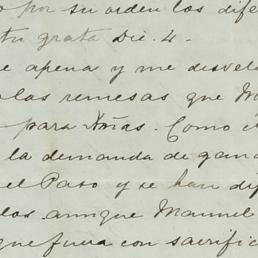 por su orden los dife
tu grata Dic. 4.
e apena y me desvel
las remesas que M
para Xñas. Como
la demanda de gana
el Paso y se han di
los aunque Manuel
que fuera con sacrific